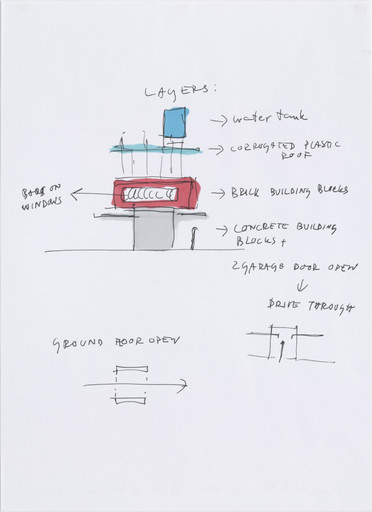 LAYERS:
→ water tank
→ CORRUGATED PLASTIC
ROOF
BARS ON
WINDOWS
→ BRICK BUILDING BLOCKS
→ CONCRETE BUILDING
BLOCKS +
2 GARAGE DOOR OPEN
↓
DRIVE THROUGH
GROUND FLOOR OPEN